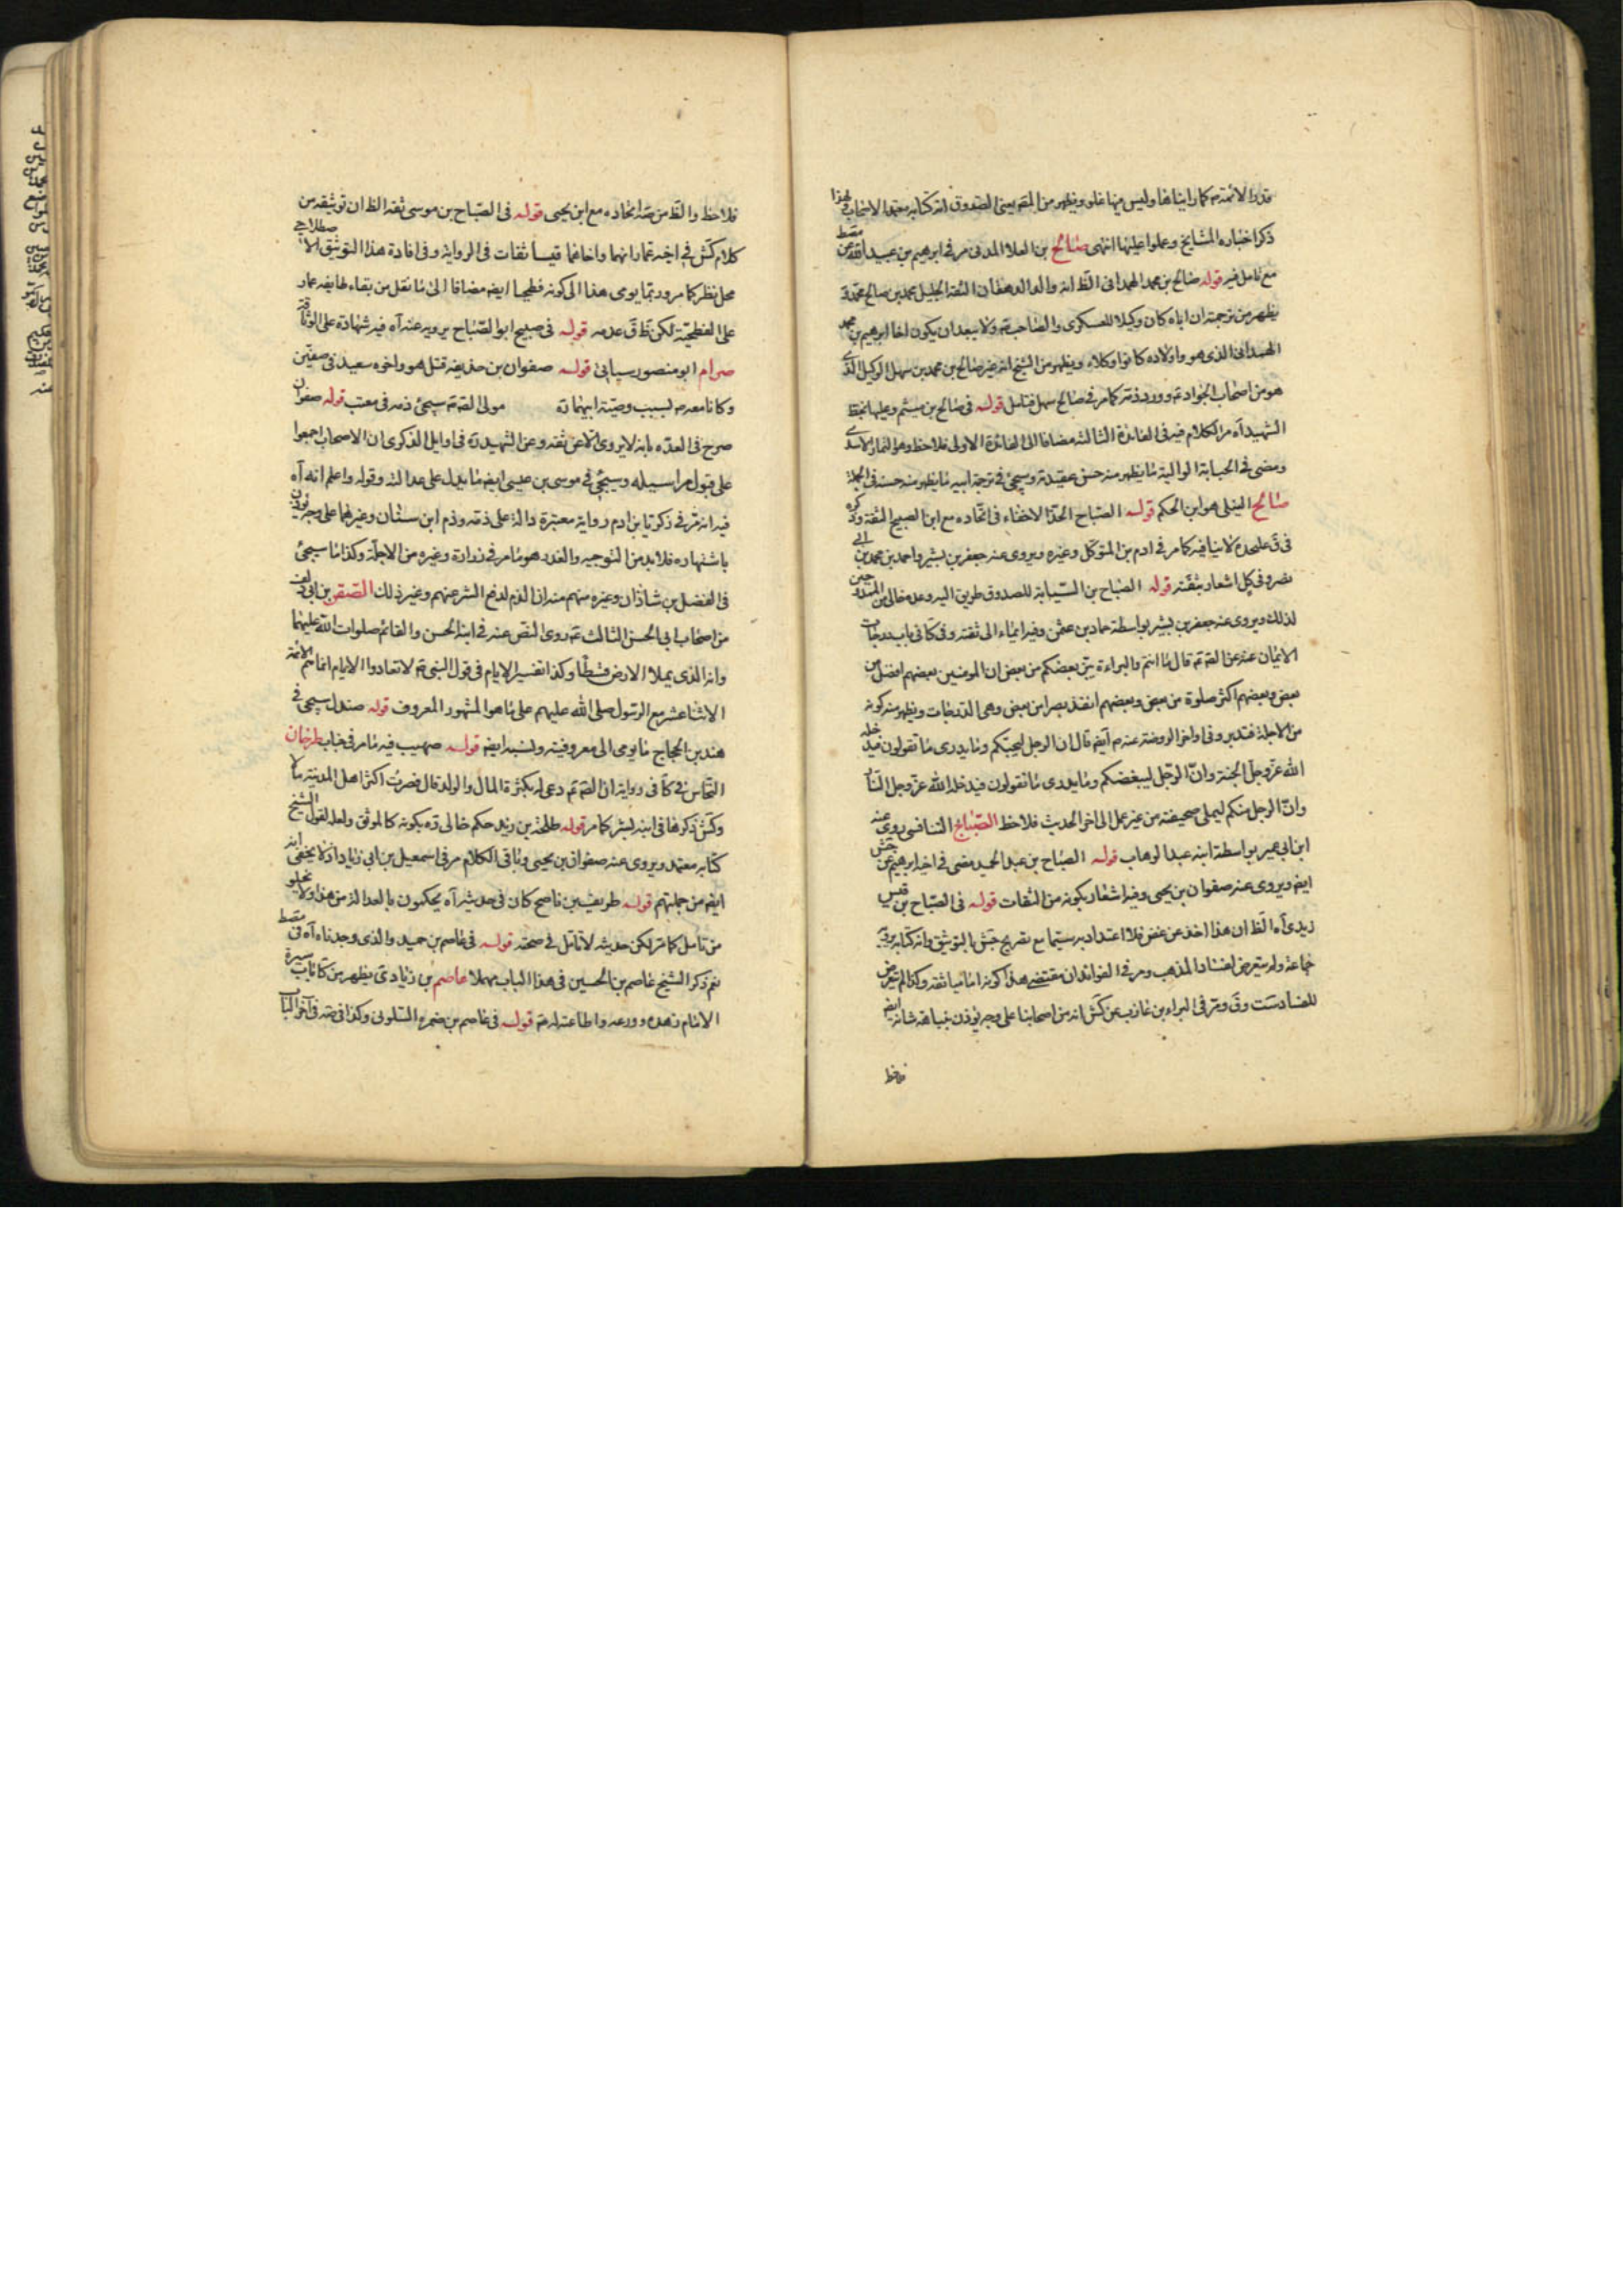 ذكر اخباره المشايخ وعملوا عليها انتهى صالح بن العلا المدنى مر فى ابرهيم بن عبيد الله
مع تامل فيه قوله صالح بن محمد الهمدانى الظ انه والعالد الثقة الجليل محمد بن صالح
يظهر من ترجمته ان اباه كان وكيلا للعسكرى والصاحب ولا يبعد ان يكون اخا ابرهيم بن محمد
الهمدانى الذى هو واولاده كانوا وكلاء ويظهر من الشيخ انه غير صالح بن محمد بن سهل الوكيل الذى
هو من اصحاب الجواد وورد ذمه كما مر فى صالح سهل فتامل قوله فى صالح بن ميثم وعليها بخط
الشهيد آه مر الكلام فيه فى الفائدة الثالثة مضافا الى الفائدة الاولى فلاحظ وهو التمار الاسدى
ومضى فى الحبابة الوالبية ما يظهر منه حسن عقيدته وسيجئ فى ترجمة ابيه ما يظهر منه حسنه فى الجملة
صالح النيلى هو ابن الحكم قوله الصباح الحذا لاخفاء فى اتحاده مع ابن الصبيح الثقة وذكره
فى ق عليحده لا ينافيه كما مر فى ادم بن المتوكل وغيره ويروى عنه جعفر بن بشير واحمد بن محمد بن ابى
نصر وفى كل اشعار بثقته قوله الصباح بن السيابة للصدوق طريق اليه وعده خالى من الممدوحين
لذلك ويروى عنه جعفر بن بشير بواسطة حماد بن عثمن وفيه ايماء الى ثقته وفى كا فى باب درجات
الايمان عنه عن الصم قال ما انتم والبراءة يبرئ بعضكم من بعض ان المومنين بعضهم افضل من
بعض وبعضهم اكثر صلوة من بعض وبعضهم انفذ بصرا من بعض وهى الدرجات ويظهر منه كونه
من الاجلة فتدبر وفى اواخر الروضة عنه ايضا قال ان الرجل ليحبكم وما يدرى ما تقولون فيدخله
الله عز وجل الجنة وان الرجل ليبغضكم وما يدرى ما تقولون فيدخله الله عز وجل النار
وان الرجل منكم ليملى صحيفته من غير عمل الى اخر الحديث فلاحظ الصباح روى عنه
ابن ابى عمير بواسطة ابنه عبد الوهاب قوله الصباح بن عبد الحميد مضى فى اخيه ابرهيم عن جش
ايضا ويروى عنه صفوان بن يحيى وفيه اشعار بكونه من الثقات قوله فى الصباح بن قيس
زيدى آه الظ ان هذا اخذ من غض فلا اعتداد به سيما مع تصريح جش بالتوثيق وانه كتابه يرويه
جماعة ولم يتعرض لفساد المذهب ومر فى الفوائد ان مقتضى هذا كونه اماميا ثقة وكذا لم يتعرض
للفساد ست وق ومر فى البراء بن عازب عن كش انه من اصحابنا على وجه يوذن بنباهة شانه ايضا
فلاحظ
فلاحظ والظ من صه اتحاده مع ابن يحيى قوله فى الصباح بن موسى ثقة الظ ان توثيقه من
كلام كش فى اخيه عمار انهما واخاهما قيسا ثقات فى الرواية وفى افادة هذا التوثيق الاصطلاحى
محل نظر كما مر وربما يومى هذا الى كونه فطحيا ايضا مضافا الى ما نقل من بقاء طايفه عمار
على الفطحية لكن ظ ق عدمه قوله فى صبيح ابو الصباح يرويه عنه آه فيه شهادة على الوثاقة
صرام ابو منصور سياتى قوله صفوان بن حذيفه قتل هو واخوه سعيد فى صفين
وكانا معه بسبب وصية ابيهما مولى الصم سيجئ ذمه فى معتب قوله صفوان
صرح فى العده بانه لا يروى الا عن ثقة وعن الشهيد فى اوايل الذكرى ان الاصحاب اجمعوا
على قبول مراسيله وسيجئ فى موسى بن عيسى ايضا ما يدل على عدالته وقوله واعلم انه آه
فيه انه مر فى ذكريا بن ادم رواية معتبرة دالة على ذمه وذم ابن سنان وغيرهما على وجه يوذن
باشتهاره فلابد من التوجيه والعذر هو ما مر فى زرارة وغيره من الاجلة وكذا ما سيجئ
فى الفضل بن شاذان وغيره منهم منه ان الذم لدفع الشر عنهم وغير ذلك الصقر بن ابى دلف
من اصحاب ابى الحسن الثالث روى النص عنه فى ابنه الحسن والقائم صلوات الله عليهما
وانه الذى يملا الارض قسطا وكذا تفسير الايام فى قول النبى لا تعادوا الايام انما هم الائمة
الاثنا عشر مع الرسول صلى الله عليهم على ما هو المشهور المعروف قوله صندل سيجئ فى
هند بن الحجاج ما يومى الى معروفيته ولنسبه ايضا قوله صهيب فيه ما مر فى خباب طرخان
النخاس فى كا فى رواية ان الصم دعى له بكثرة المال والولد قال فصرت اكثر اهل المدينة مالا
وكش ذكرها فى ابنه بشر كما مر قوله طلحة بن زيد حكم خالى ره بكونه كالموثق ولعله لقول الشيخ
كتابه معتمد ويروى عنه صفوان بن يحيى وباقى الكلام مر فى اسمعيل بن ابى زياد اذ لا يخفى انه
ايضا من جملتهم قوله ظريف بن ناصح كان فى حديثه آه يحكمون بالعدالة من هذا ولا يخلو
من تامل كما مر لكن حديثه لا تامل فى صحته قوله فى عاصم بن حميد والذى وجدناه آه فى
نعم ذكر الشيخ عاصم بن الحسين فى هذا الباب مهملا عاصم بن زياد يظهر من كا باب سيرة
الامام زهده وورعه واطاعته له قوله فى عاصم بن ضمره السلولى وكذا فى صه فى آخر الباب